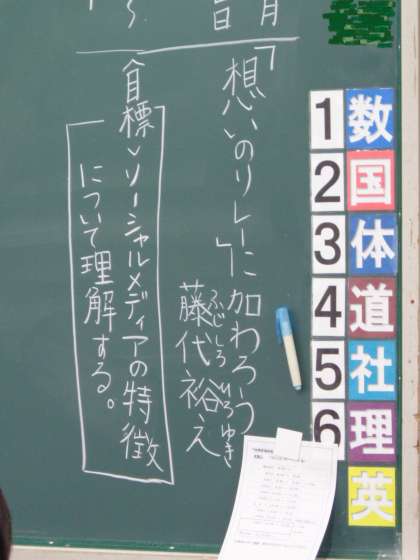 月
日
「想いのリレー」に加わろう
藤代裕之
ふじしろ ひろゆき
〈目標〉ソーシャルメディアの特徴
について理解する。
1 数
2 国
3 体
4 道
5 社
6 理
英